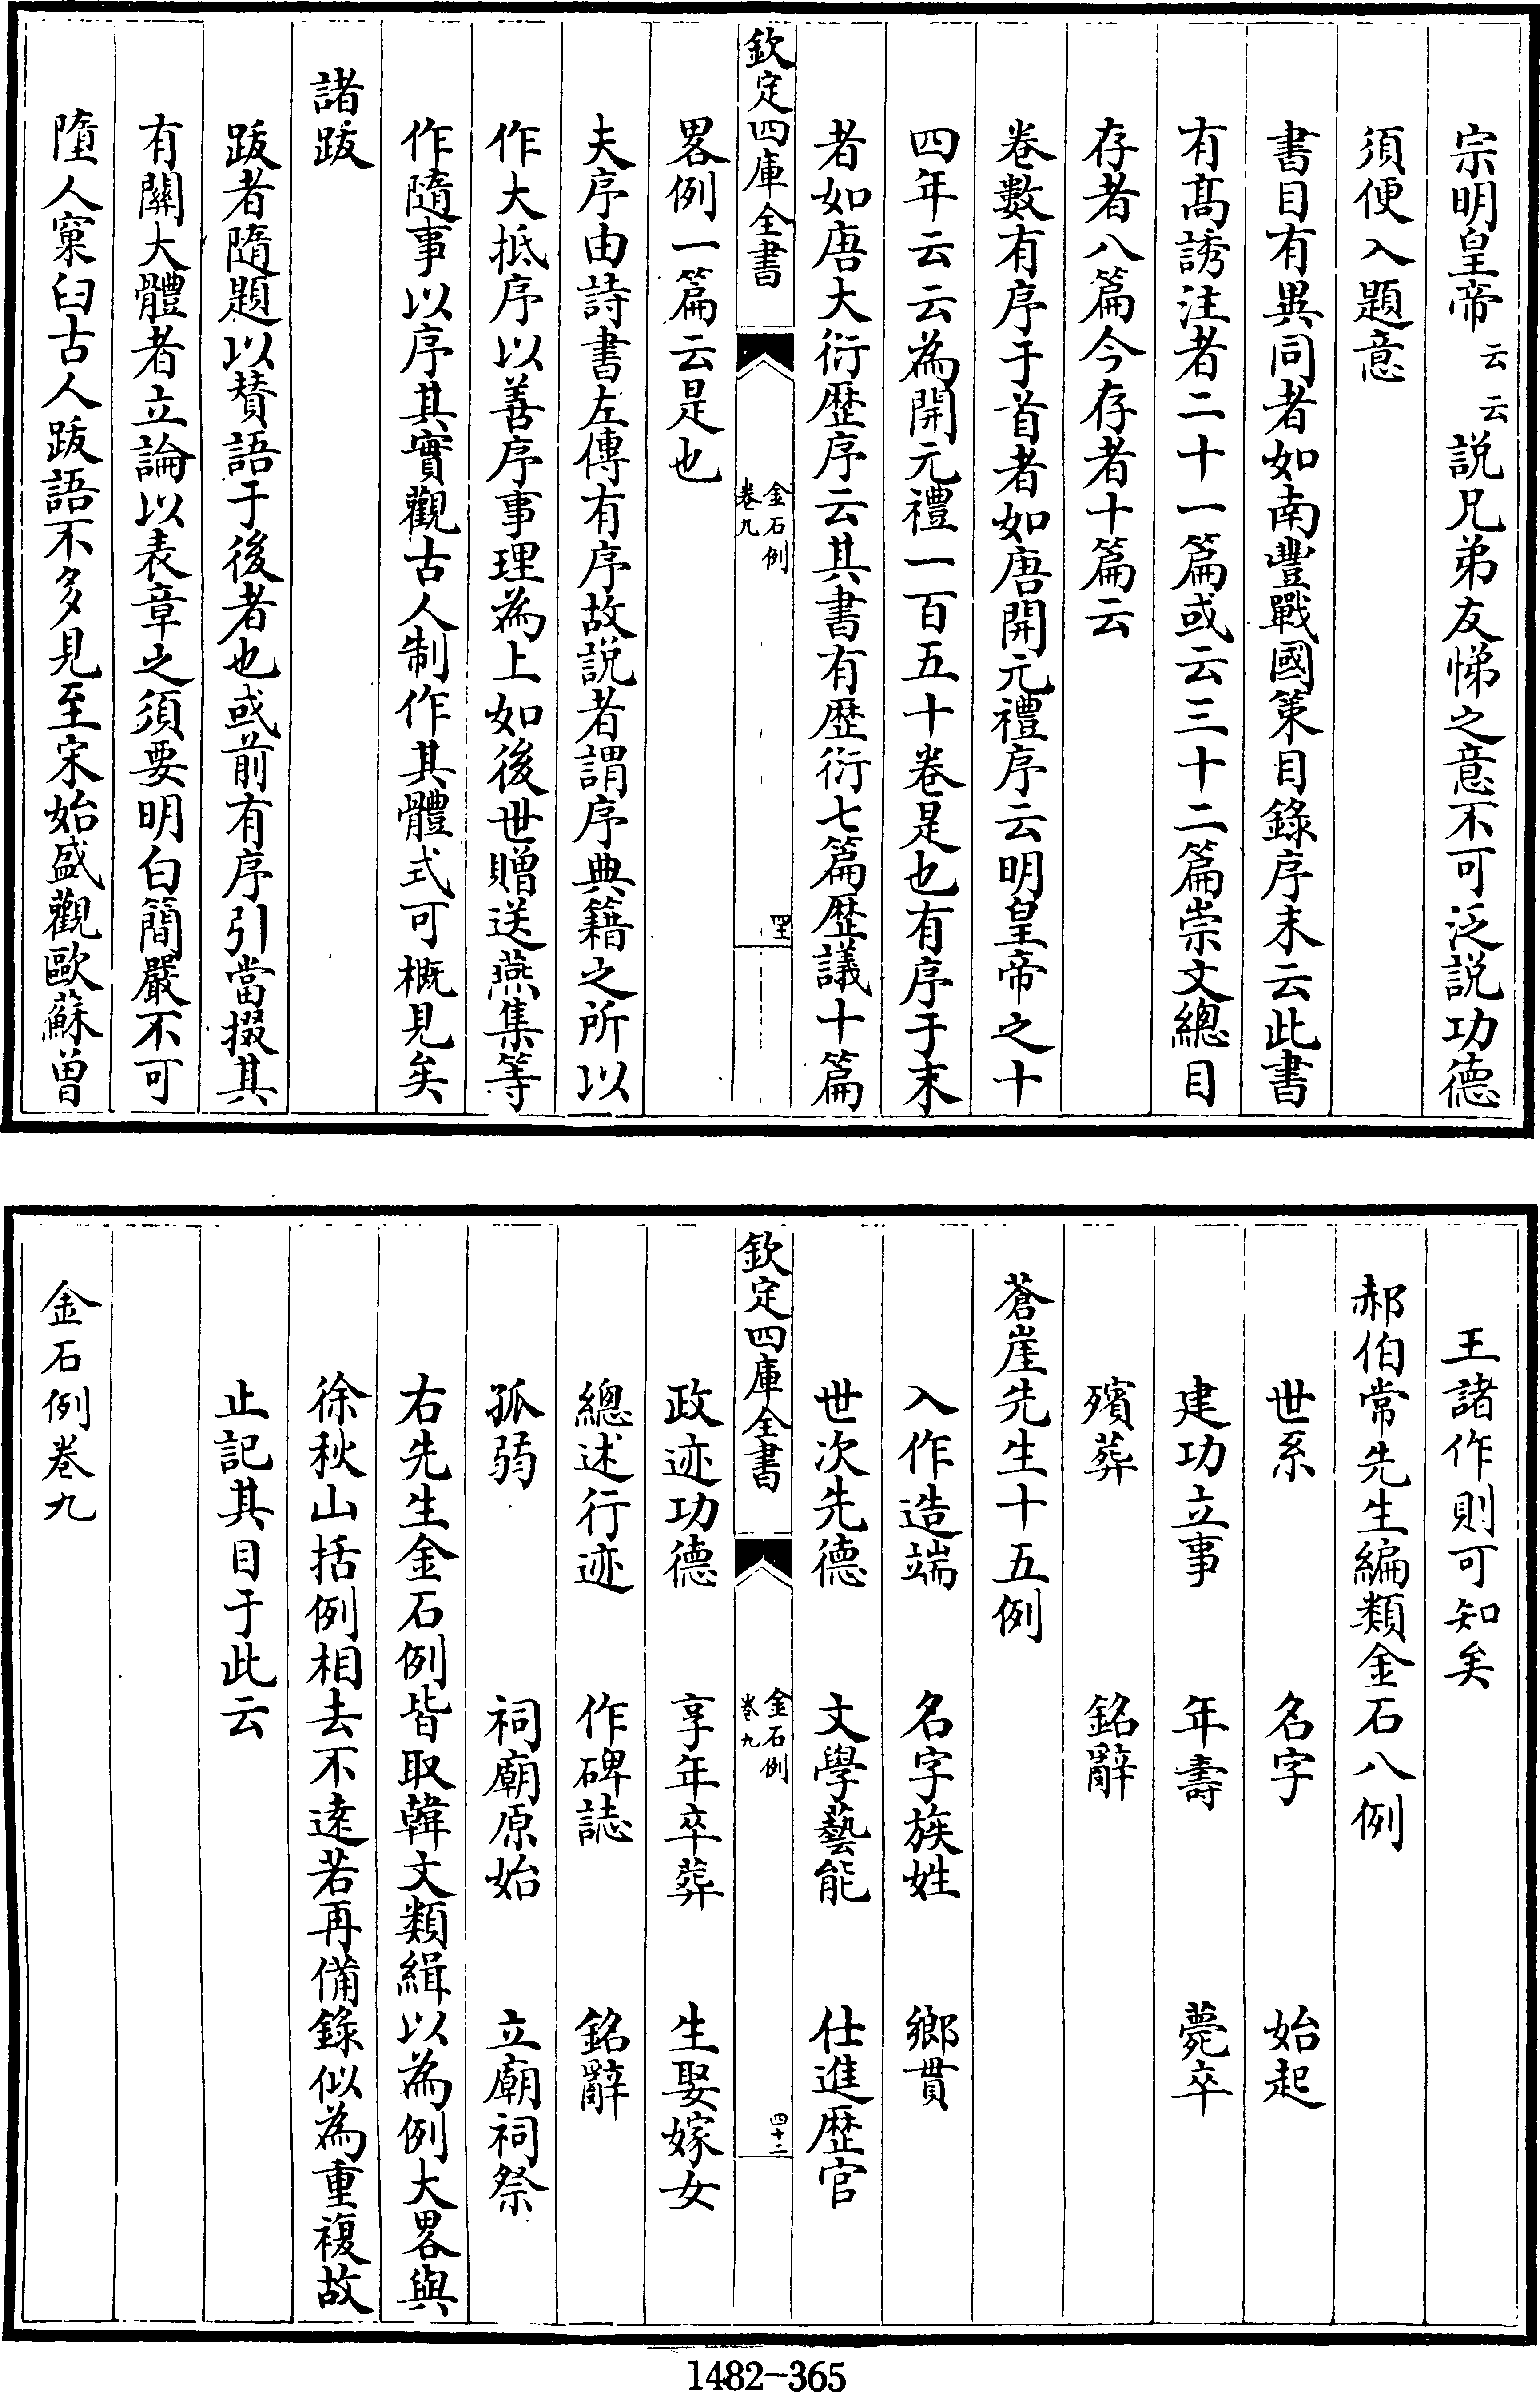 宗明皇帝云云説兄弟友悌之意不可泛説功德
須便入題意
書目有異同者如南豐戰國策目錄序末云此書
有髙誘注者二十一篇或云三十二篇崇文總目
存者八篇今存者十篇云
卷數有序于首者如唐開元禮序云明皇帝之十
四年云云為開元禮一百五十卷是也有序于末
者如唐大衍歴序云其書有歴衍七篇歴議十篇
欽定四庫全書
金石例
卷九
四十一
畧例一篇云是也
夫序由詩書左傳有序故説者謂序典籍之所以
作大抵序以善序事理為上如後世贈送燕集等
作隨事以序其實觀古人制作其體式可概見矣
諸跋
跋者隨題以贊語于後者也或前有序引當掇其
有關大體者立論以表章之須要明白簡嚴不可
墮人窠臼古人跋語不多見至宋始盛觀歐蘇曾
王諸作則可知矣
郝伯常先生編類金石八例
世系　名字　始起
建功立事　年壽　薨卒
殯葬　銘辭
蒼崖先生十五例
入作造端　名字族姓　鄉貫
世次先德　文學藝能　仕進歴官
欽定四庫全書
金石例
卷九
四十二
政迹功德　享年卒葬　生娶嫁女
總述行迹　作碑誌　銘辭
孤弱　祠廟原始　立廟祠祭
右先生金石例皆取韓文類緝以為例大畧與
徐秋山括例相去不逺若再備錄似為重複故
止記其目于此云
金石例卷九
1482-365